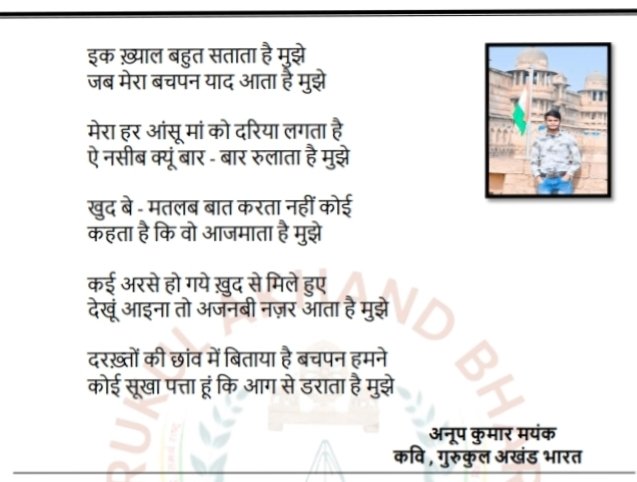 इक ख़्याल बहुत सताता है मुझे
जब मेरा बचपन याद आता है मुझे
मेरा हर आंसू मां को दरिया लगता है
ऐ नसीब क्यूं बार - बार रुलाता है मुझे
खुद बे - मतलब बात करता नहीं कोई
कहता है कि वो आजमाता है मुझे
कई अरसे हो गये ख़ुद से मिले हुए
देखूं आइना तो अजनबी नज़र आता है मुझे
दरख़्तों की छांव में बिताया है बचपन हमने
कोई सूखा पत्ता हूं कि आग से डराता है मुझे
अनूप कुमार मयंक
कवि , गुरुकुल अखंड भारत